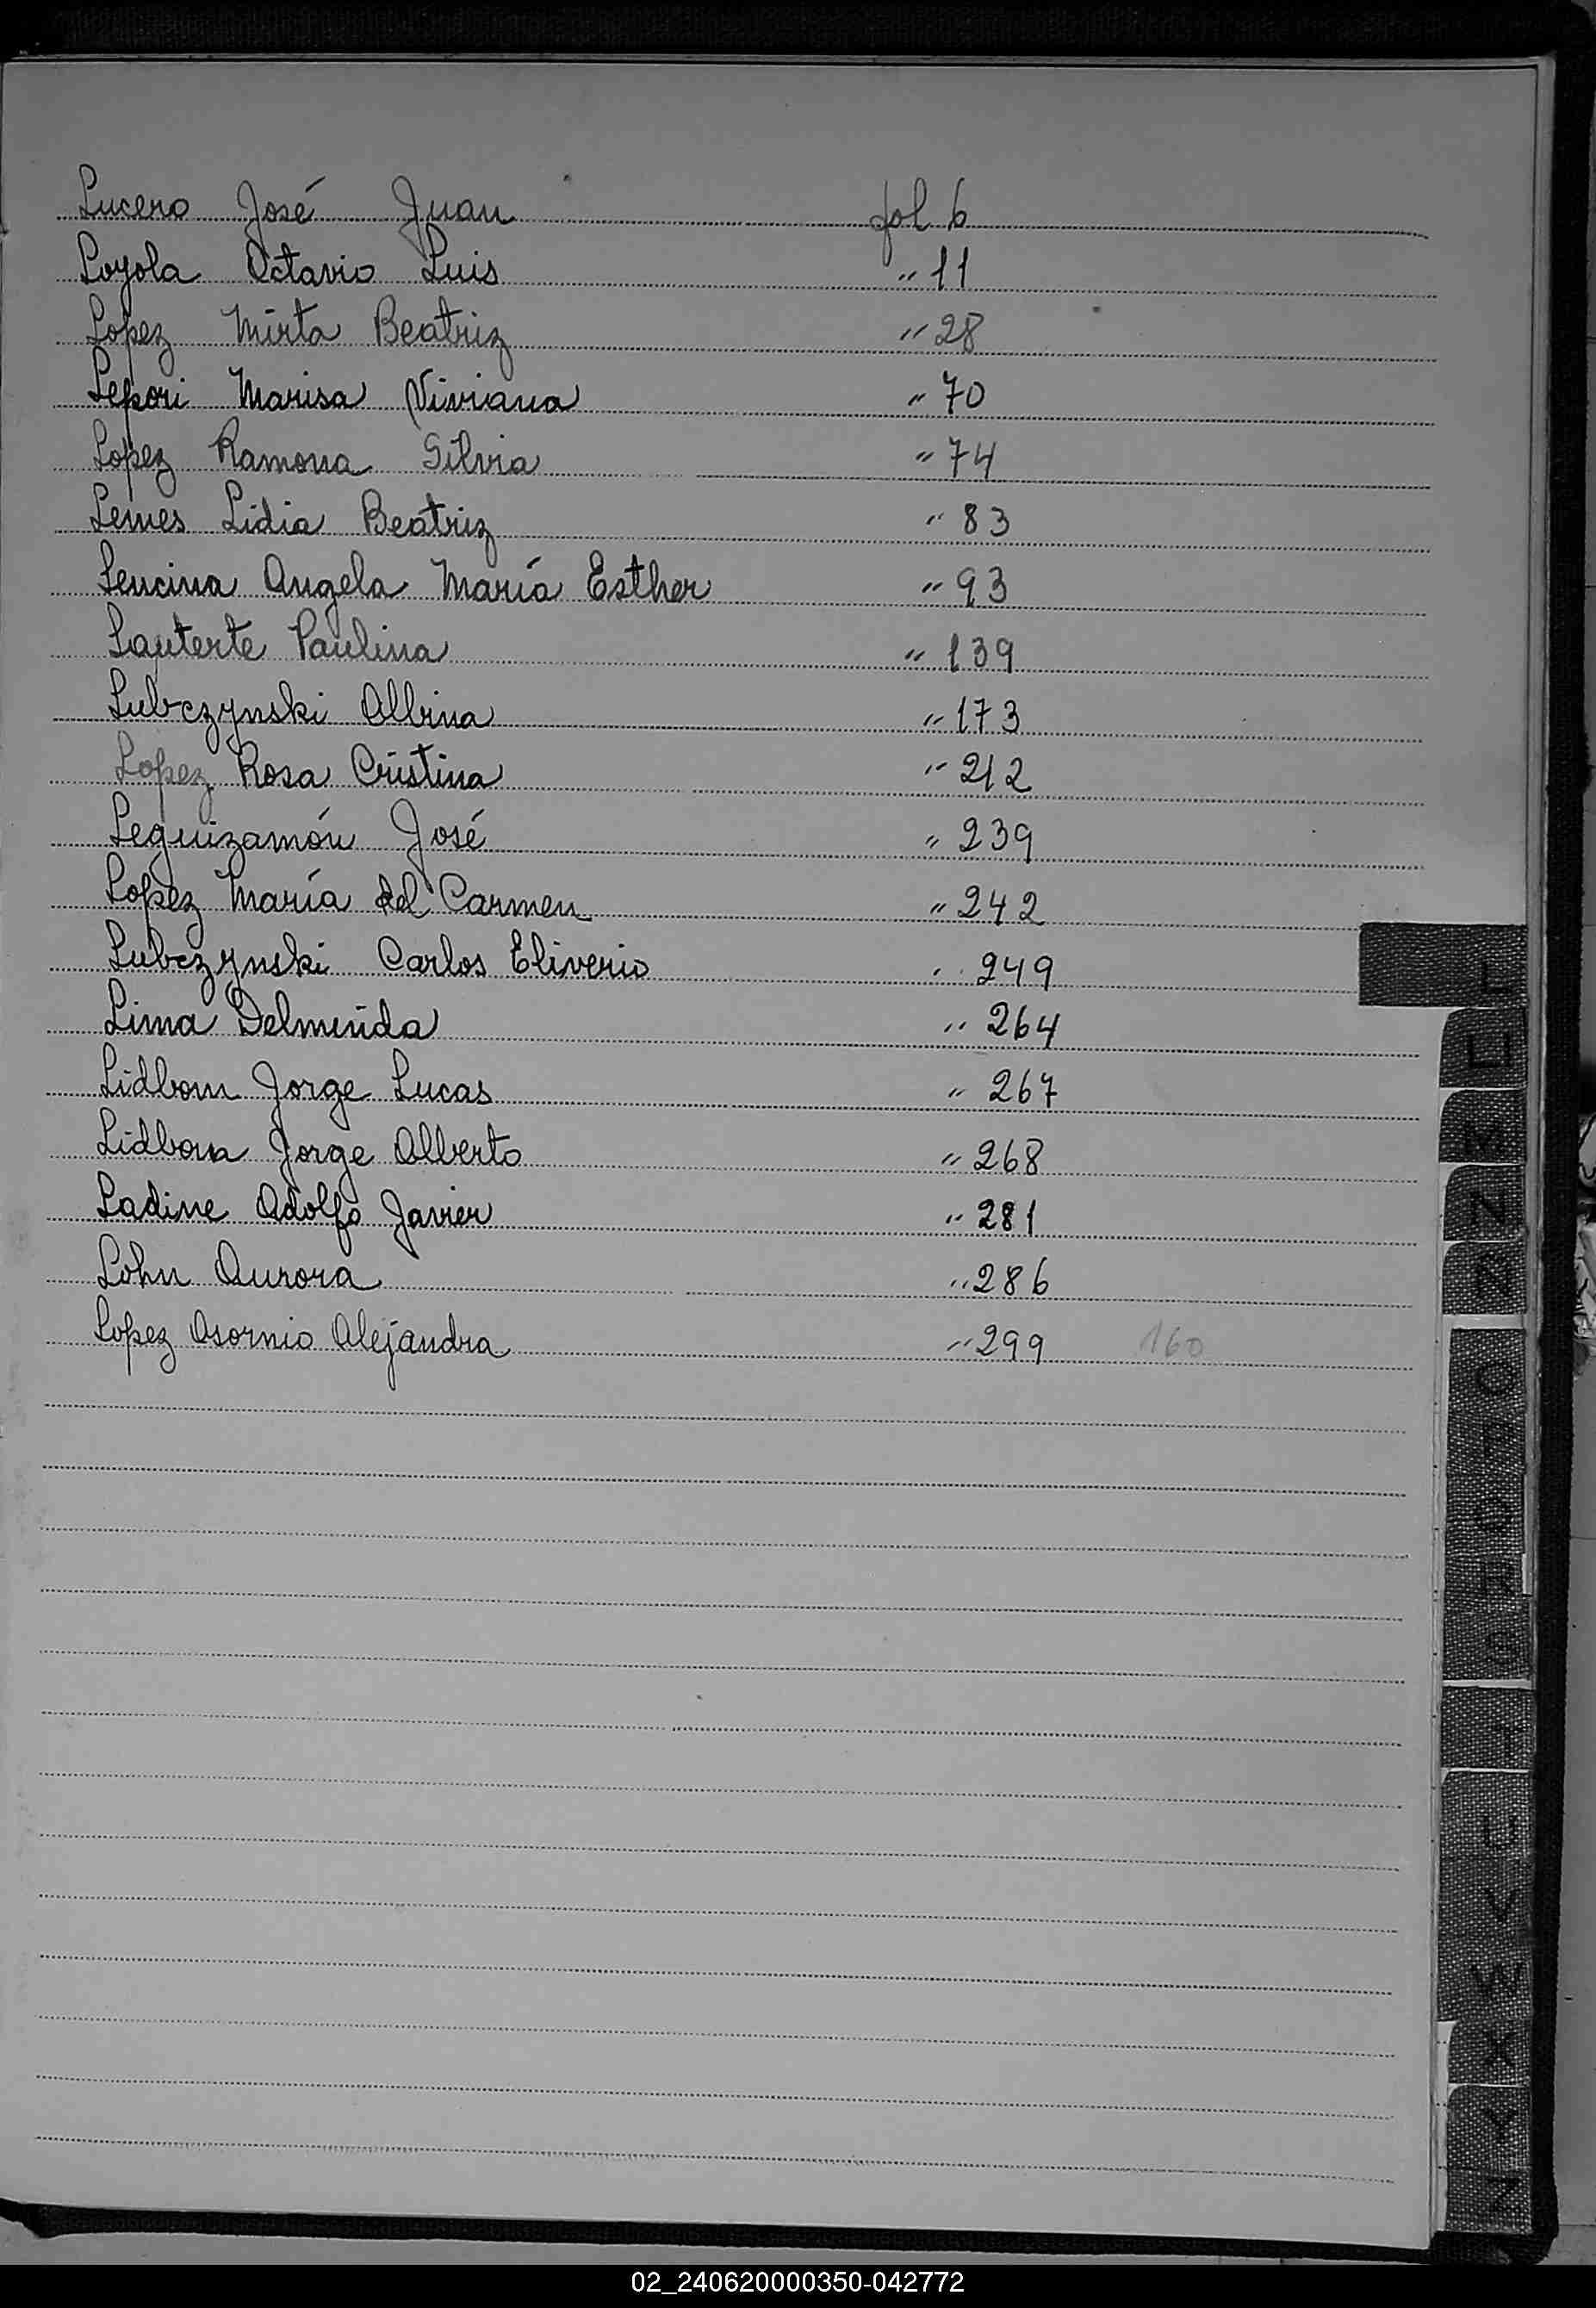 Lucero José Juan fol 6
Loyola Octavio Luis " 11
Lopez Mirta Beatriz " 28
Lepori Marisa Viviana " 70
Lopez Ramona Silvia " 74
Lemes Lidia Beatriz " 83
Lencina Angela María Esther " 93
Lauterte Paulina " 139
Lubczynski Albina " 173
Lopez Rosa Cristina " 212
Leguizamón José " 239
Lopez María del Carmen " 242
Lubczynski Carlos Eliverio " 249
Lima Delmírida " 264
Lidbom Jorge Lucas " 267
Lidbom Jorge Alberto " 268
Ladine Adolfo Javier " 281
Lohn Aurora " 286
Lopez Osornio Alejandra " 299 160
L
LL
M
N
Ñ
O
P
Q
R
S
T
U
V
W
X
Y
Z
02_240620000350-042772